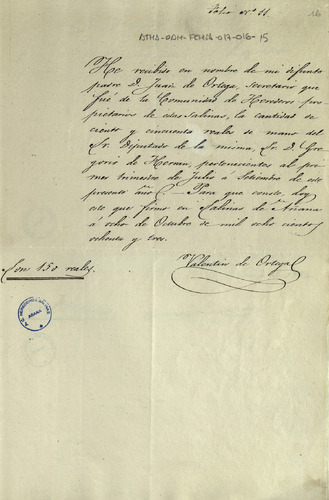 16
Folio nº 11.
ATHA-DAH-FCHSA-017-016-15
He recibido en nombre de mi difunto
padre D. Juan de Ortega, secretario que
fué de la Comunidad de Herederos pro
pietarios de estas Salinas, la cantidad de
ciento y cincuenta reales de mano del
Sr. Diputado de la misma, Sr. D. Gre
gorio de Heran, pertenecientes al pri
mer trimestre de Julio á Setiembre de este
presente año. Para que conste, doy
este que firmo en Salinas de Añana
á ocho de Octubre de mil ocho cientos
ochenta y tres.
Valentin de Ortega
Son 150 reales.
AÑANA